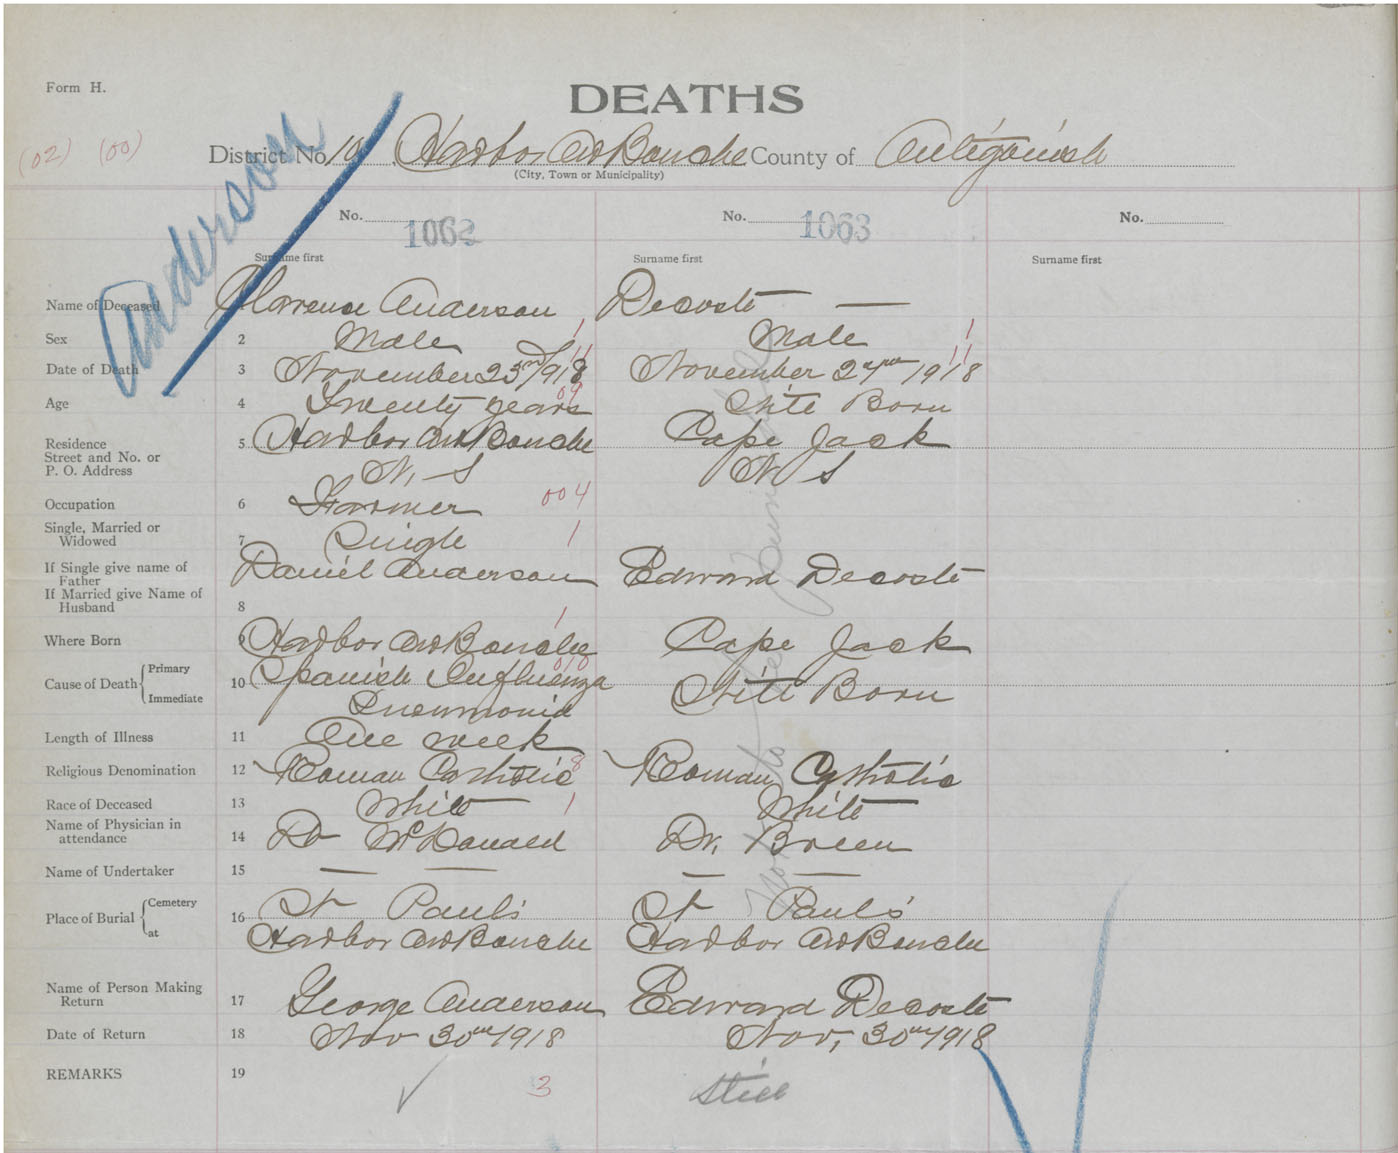 Form H.
DEATHS
(02) (00)
Anderson
District No. 10 Harbor Au Bouche County of Antigonish
(City, Town or Municipality)
No. 1062 No. 1063 No.
Surname first Surname first Surname first
Name of Deceased 1 Clarence Anderson Decoste —
Sex 2 Male 1 Male 1
Date of Death 3 November 23rd 1918 11 November 24th 1918 11
Age 4 Twenty years 09 Still Born
Residence
Street and No. or
P. O. Address
5 Harbor Au Bouche Cape Jack
N. S N S
Occupation 6 Farmer 004
Single, Married or
Widowed
7 Single 1
If Single give name of
Father
Daniel Anderson Edward Decoste
If Married give Name of
Husband
8
Where Born 9 Harbor Au Bouche 1 Cape Jack
Cause of Death { Primary
Immediate
10 Spanish Influenza 010 Still Born
Pneumonia
Length of Illness 11 One week
Religious Denomination 12 Roman Catholic 8 Roman Catholic
Race of Deceased 13 White 1 White
Name of Physician in
attendance
14 Dr McDonald Dr. Breen
Name of Undertaker 15 — — — —
Place of Burial { Cemetery
at
16 St Paul's St Paul's
Harbor Au Bouche Harbor Au Bouche
Name of Person Making
Return
17 George Anderson Edward Decoste
Date of Return 18 Nov 30th 1918 Nov, 30th 1918
REMARKS 19 ✓ 3 Still
Not to be